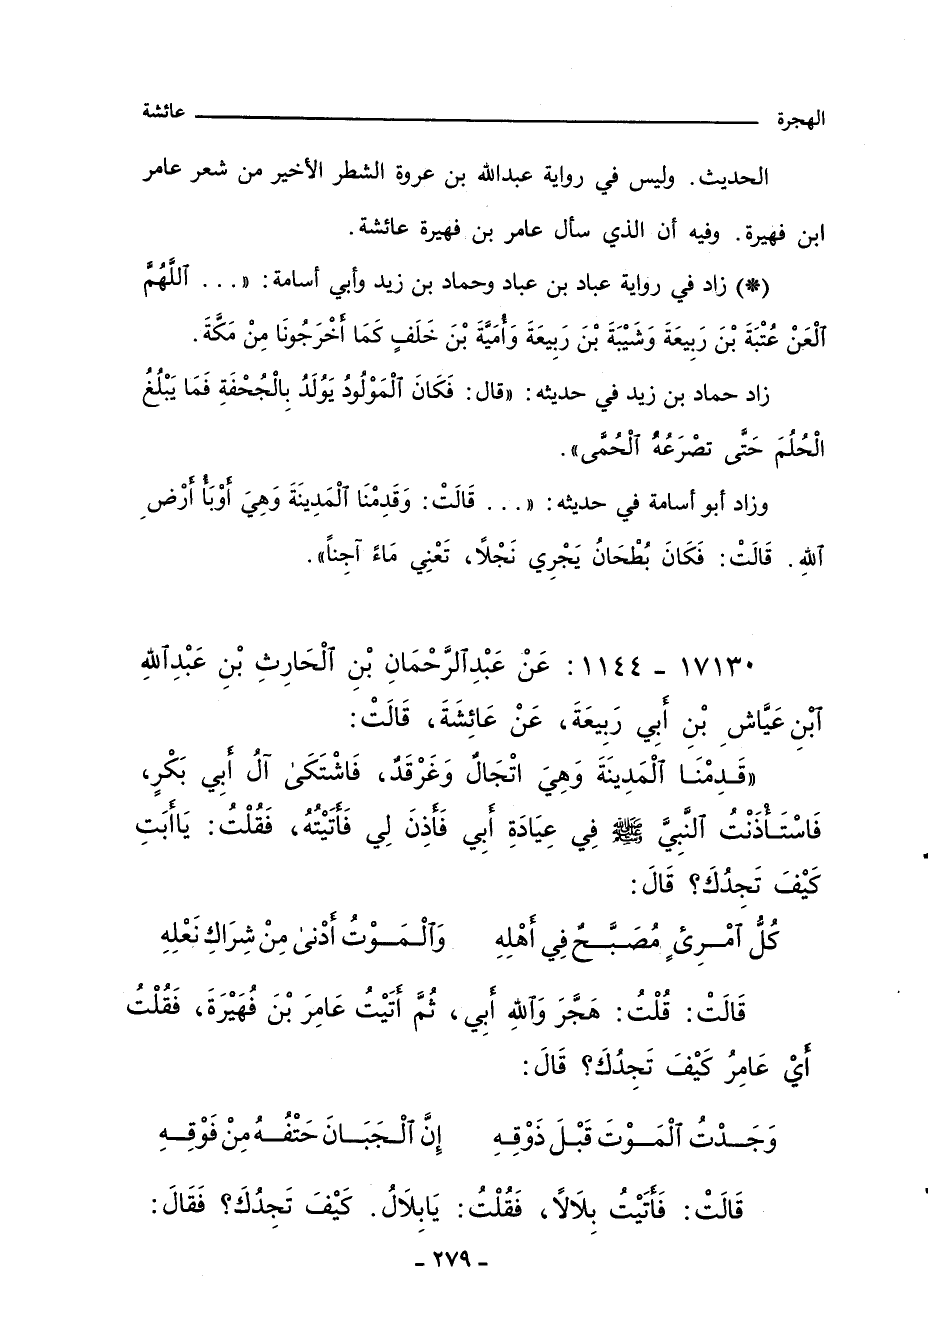 الهجرة عائشة
الحديث. وليس في رواية عبدالله بن عروة الشطر الأخير من شعر عامر
ابن فهيرة. وفيه أن الذي سأل عامر بن فهيرة عائشة.
(*) زاد في رواية عباد بن عباد وحماد بن زيد وأبي أسامة: «... ٱللَّهُمَّ
ٱلْعَنْ عُتْبَةَ بْنَ رَبِيعَةَ وَشَيْبَةَ بْنَ رَبِيعَةَ وَأُمَيَّةَ بْنَ خَلَفٍ كَمَا أَخْرَجُونَا مِنْ مَكَّةَ.
زاد حماد بن زيد في حديثه: «قال: فَكَانَ ٱلْمَوْلُودُ يَوُلَدُ بِالْجُحْفَةِ فَمَا يَبْلُغُ
الْحُلُمَ حَتَّى تصْرَعَهُ ٱلْحُمَّى».
وزاد أبو أسامة في حديثه: «... قَالَتْ: وَقَدِمْنَا ٱلْمَدِينَةَ وَهِيَ أَوْبَأُ أَرْضِ
ٱللهِ. قَالَتْ: فَكَانَ بُطْحَانُ يَجْرِي نَجْلًا، تَعْنِي مَاءً آجِناً».
١٧١٣٠ - ١١٤٤: عَنْ عَبْدِٱلرَّحْمَانِ بْنِ ٱلْحَارِثِ بْنِ عَبْدِٱللهِ
ٱبْنِ عَيَّاشِ بْنِ أَبِي رَبِيعَةَ، عَنْ عَائِشَةَ، قَالَتْ:
«قَدِمْنَا ٱلْمَدِينَةَ وَهِيَ اتْجَالٌ وَغَرْقَدٌ، فَاشْتَكَىٰ آلُ أَبِي بَكْرٍ،
فَاسْتَأْذَنْتُ ٱلنَّبِيَّ ﷺ فِي عِيَادَةِ أَبِي فَأَذِنَ لِي فَأَتَيْتُهُ، فَقُلْتُ: يَاأَبَتِ
كَيْفَ تَجِدُكَ؟ قَالَ:
كُلُّ ٱمْرِئٍ مُصَبَّحٌ فِي أَهْلِهِ وَٱلْمَوْتُ أَدْنىٰ مِنْ شِرَاكِ نَعْلِهِ
قَالَتْ: قُلْتُ: هَجَّرَ وَٱللهِ أَبِي، ثُمَّ أَتَيْتُ عَامِرَ بْنَ فُهَيْرَةَ، فَقُلْتُ
أَيْ عَامِرُ كَيْفَ تَجِدُكَ؟ قَالَ:
وَجَدْتُ ٱلْمَوْتَ قَبْلَ ذَوْقِهِ إِنَّ ٱلْجَبَانَ حَتْفُهُ مِنْ فَوْقِهِ
قَالَتْ: فَأَتَيْتُ بِلَالاً، فَقُلْتُ: يَابِلَالُ. كَيْفَ تَجِدُكَ؟ فَقَالَ:
- ٢٧٩ -